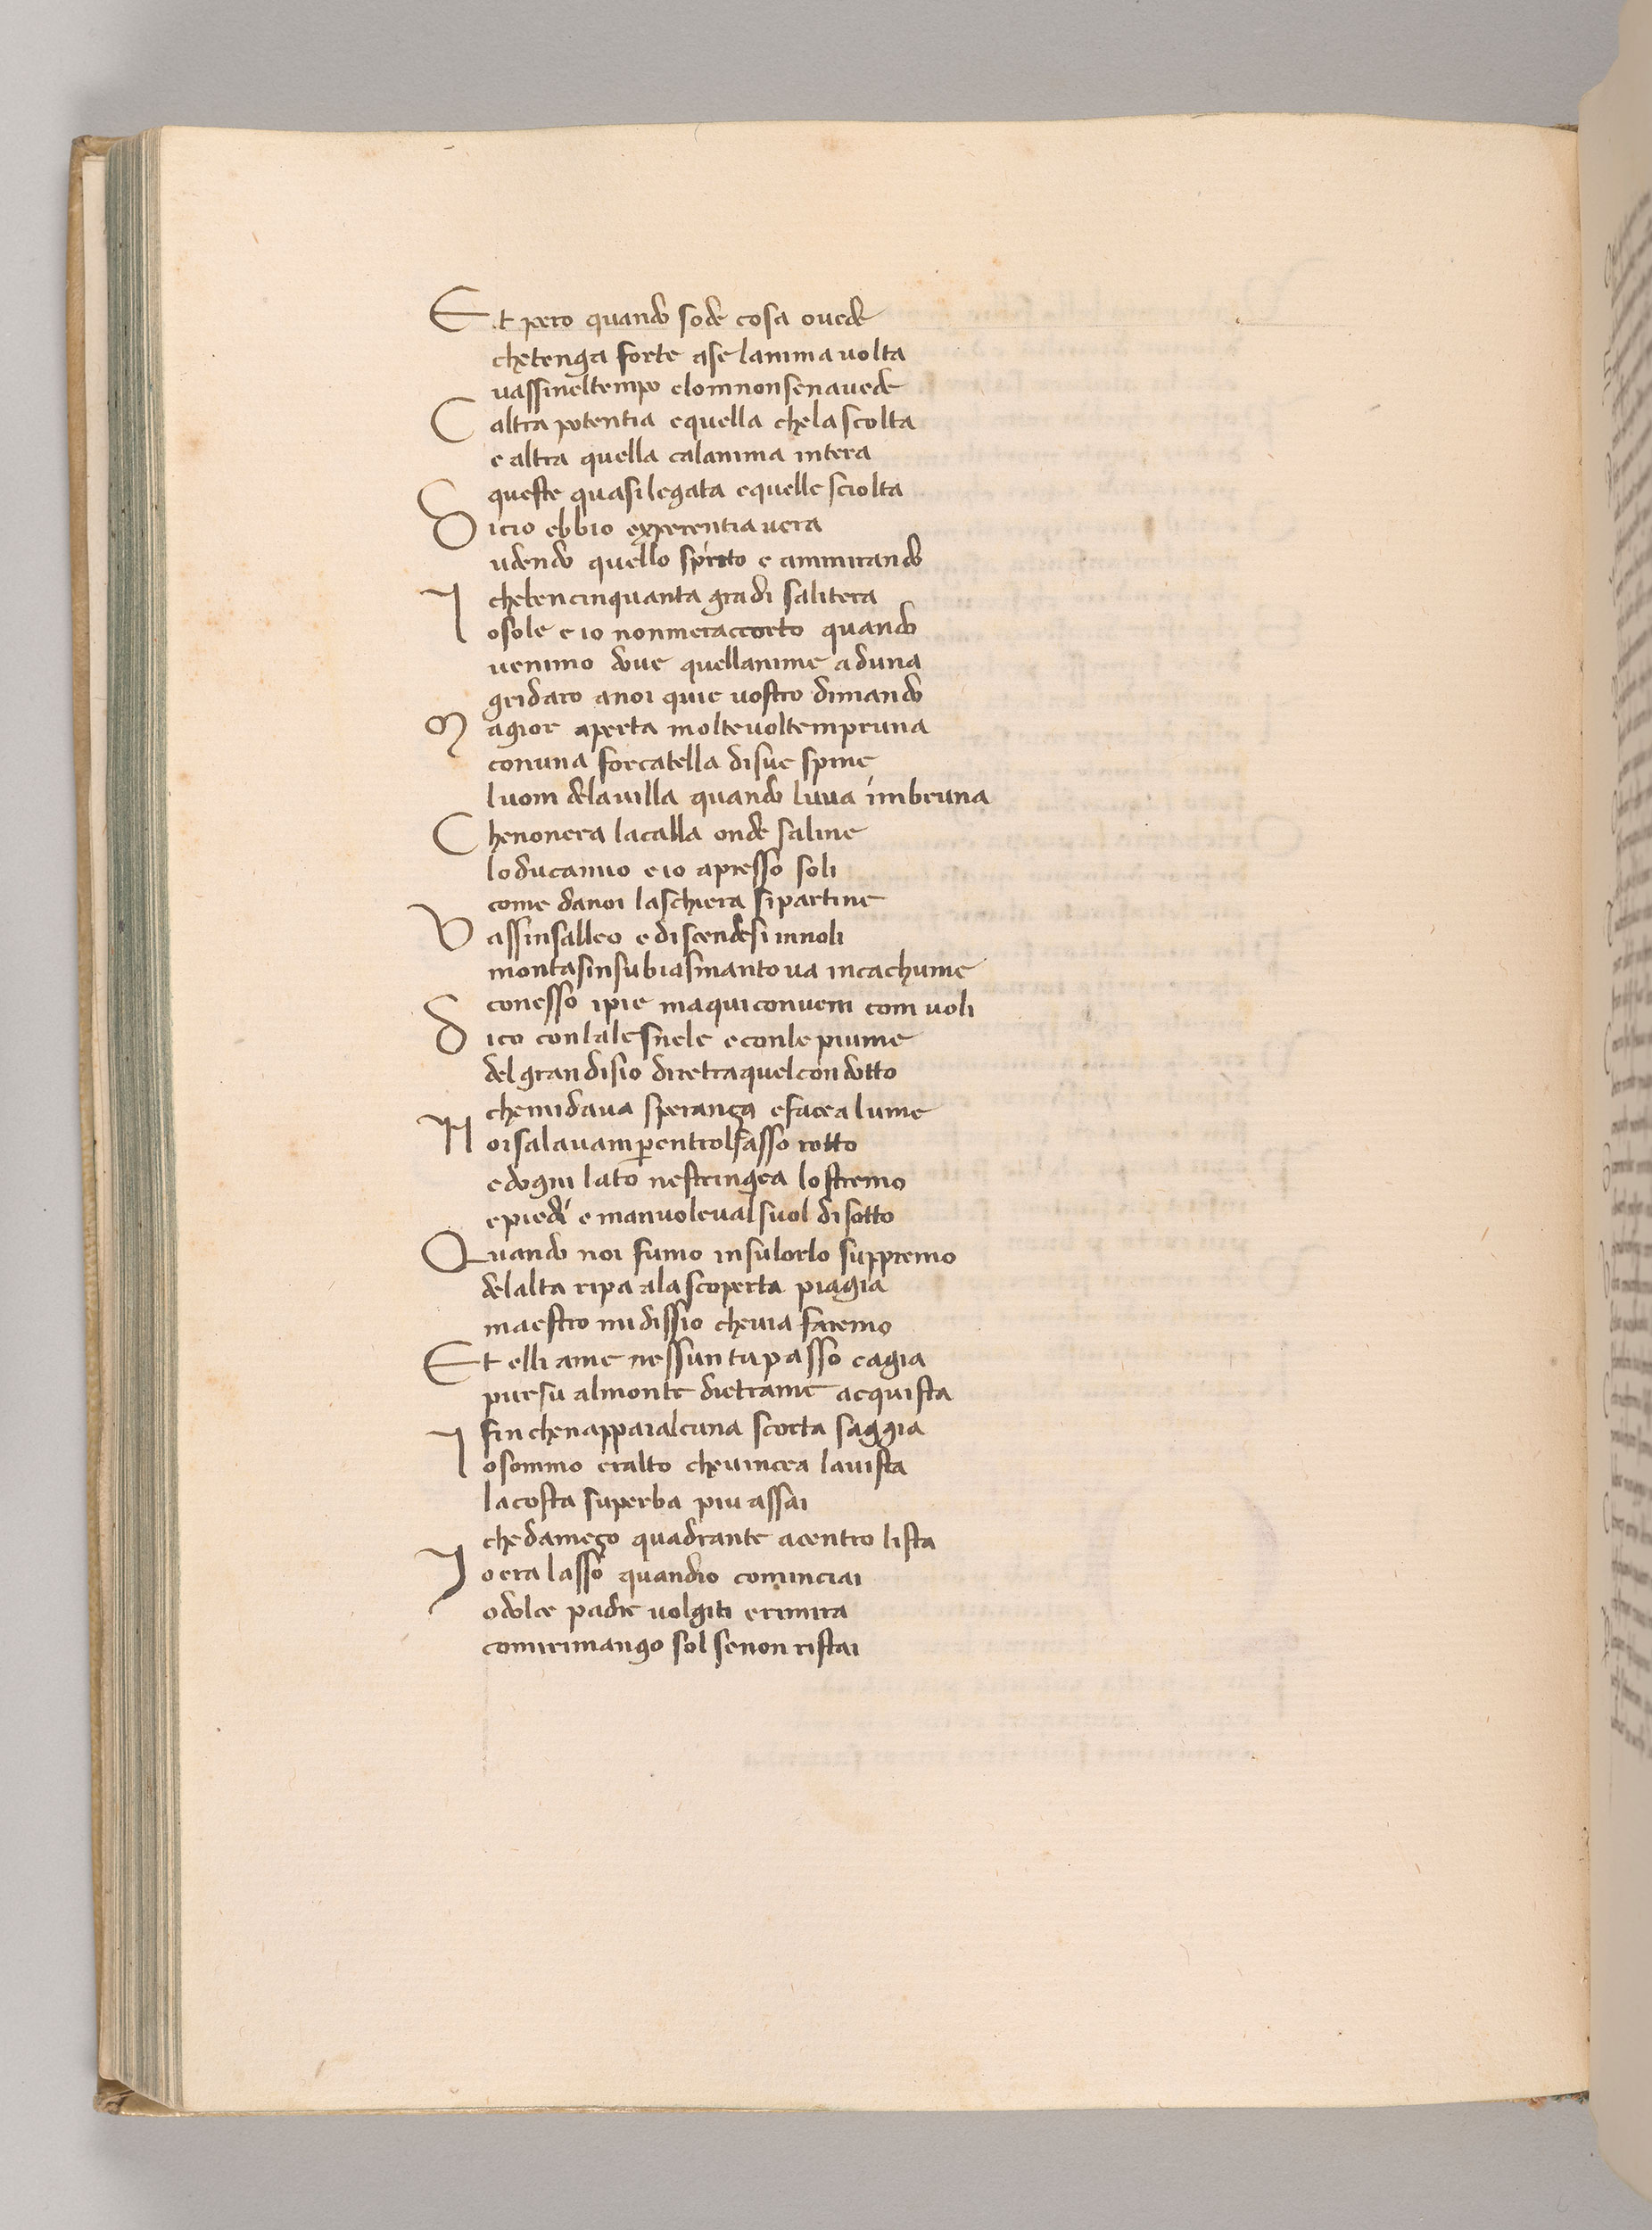 Et pero quando sode cosa ovede
chetenga forte ase lanima volta
vassineltempo elomnonsenavede
C altra potentia equella chelascolta
e altra quella calanima intera
queste quasi legata equelle sciolta
Dicio ebbio experentia vera
udendo quello spirito e ammirando
cheben cinquanta gradi salitera
Iosole e io nonmeraccorto quando
venimo dove quellanime aduna
gridaro anoi quie vostro dimando
Magior aperta moltevoltempruna
conuna forcatella disue spine
luom delavilla quando luva imbruna
Chenonera lacalla onde saline
loducamio eio apresso soli
come danoi laschiera sipartine
Vassinsalleo e discendesi innoli
montasinsubiasmantova incachume
conesso ipie maquiconvem com voli
Dico conlalesnele econle piume
del grandisio diretraquelcondotto
chemidava speranza efacea lume
Noisalavam perentrolsasso rotto
edogni lato nestringea lostremo
epiedi e manvolevalsuol disotto
Quando noi fumo insulorlo suppremo
delalta ripa alascoperta piagia
maestro midissio chevia faremo
Et elli ame nessun tupasso cagia
pursu almonte dietrame acquista
finchenappaialcuna scorta saggia
Iosommo eralto chevincea lavista
lacosta superba piu assai
chedamezo quadrante acentro lista
Ioera lasso quandio cominciai
odolce padre volgiti erimira
comirimango sol senon ristai